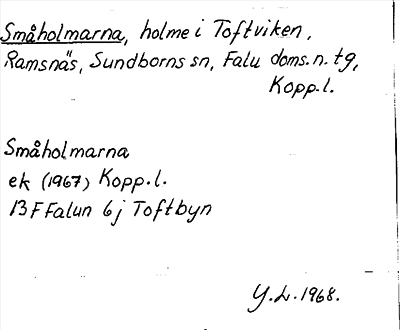 Småholmarna, holme i Toftviken,
Ramsnäs, Sundborns sn, Falu doms.n.tg,
Kopp.l.
Småholmarna
ek (1967) Kopp.l.
13 F Falun 6 j Toftbyn
Y.L. 1968.